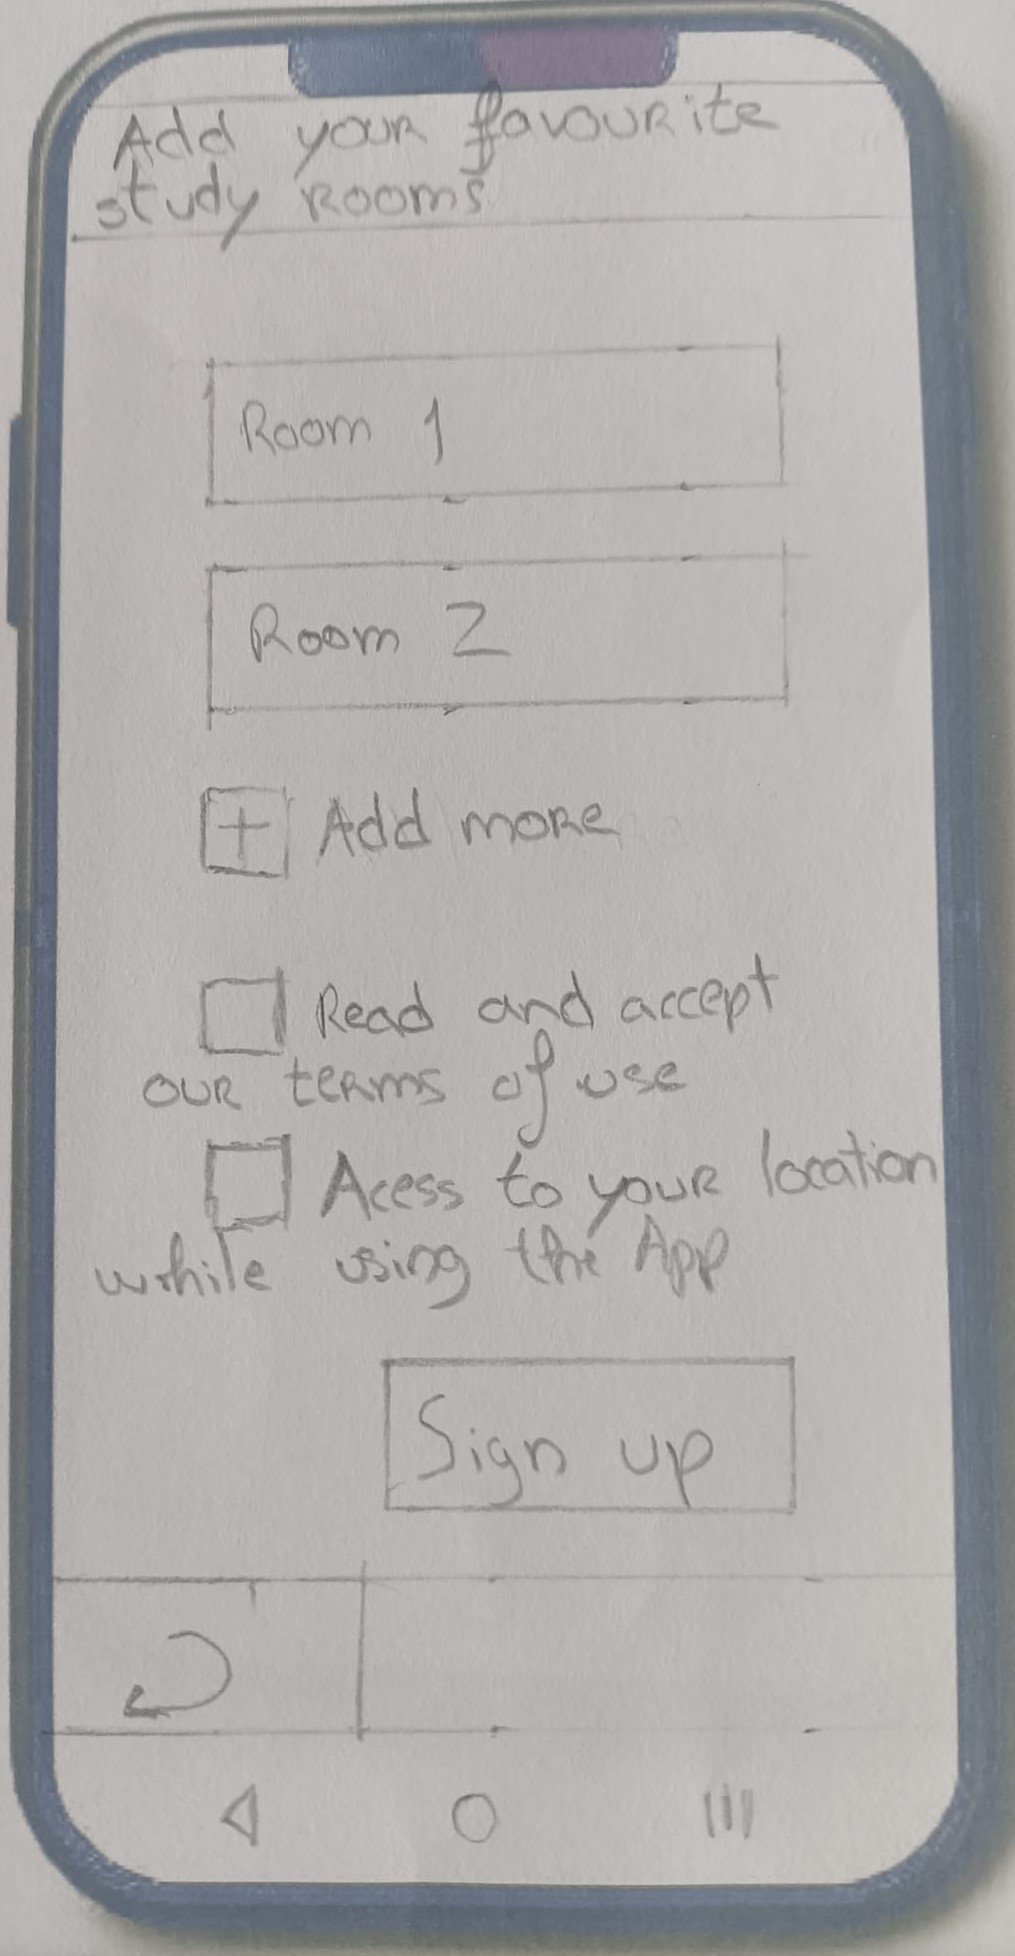 Add your favourite
study rooms
Room 1
Room 2
+ Add more
Read and accept
our terms of use
Acess to your location
while using the App
Sign up